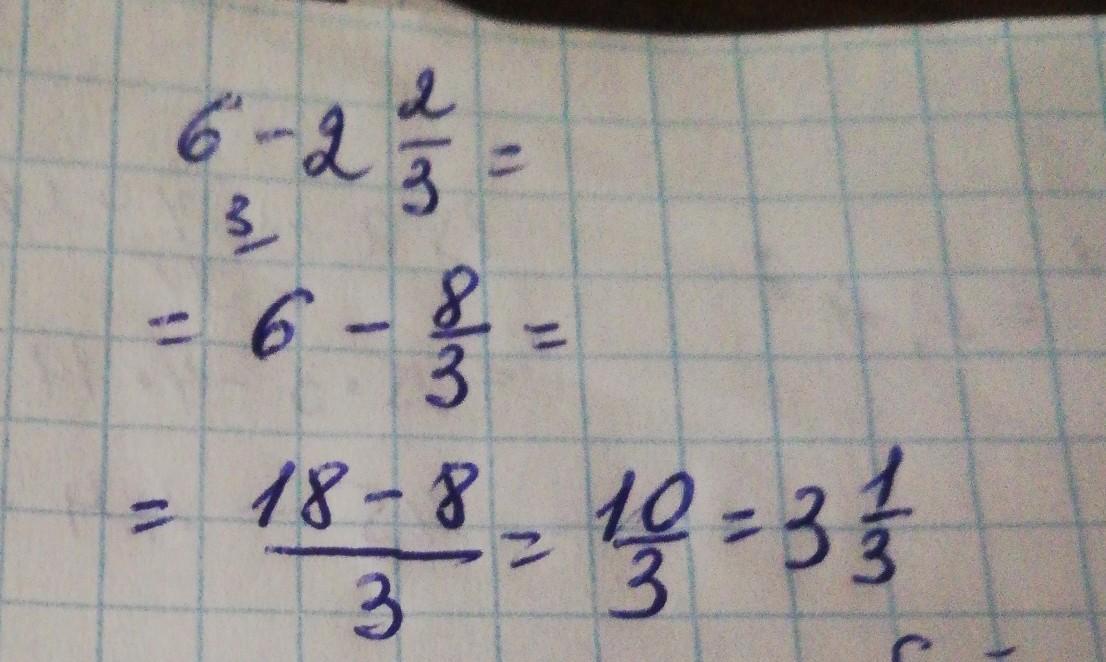 6 - 2 2/3 =
3
= 6 - 8/3 =
= (18 - 8)/3 = 10/3 = 3 1/3